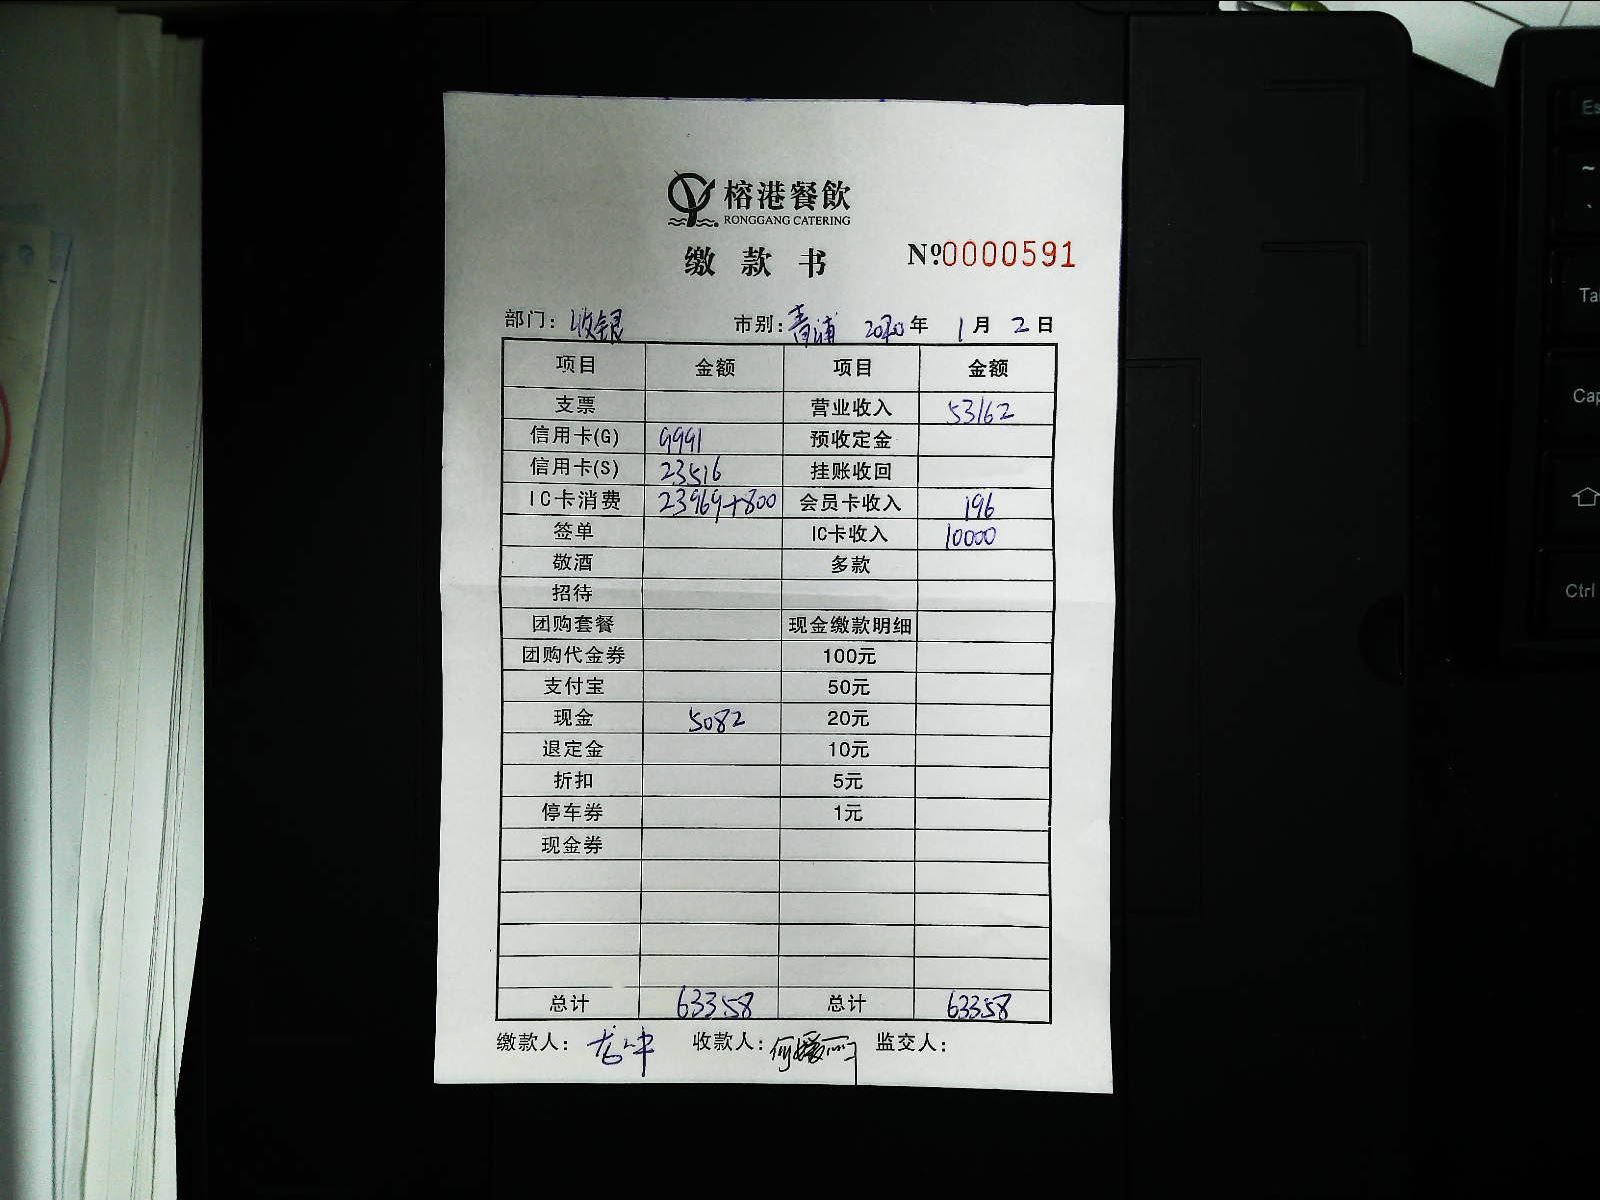 榕港餐飲
RONGGANG CATERING
缴款书 №0000591
部门：收银 市别：青浦 2020年 1月 2日
项目 金额 项目 金额
支票 营业收入 53162
信用卡(G) 9991 预收定金
信用卡(S) 23516 挂账收回
IC卡消费 23969+800 会员卡收入 196
签单 IC卡收入 10000
敬酒 多款
招待
团购套餐 现金缴款明细
团购代金券 100元
支付宝 50元
现金 5082 20元
退定金 10元
折扣 5元
停车券 1元
现金券
总计 63358 总计 63358
缴款人： 收款人：何媛丽 监交人：
Es
~
、
Ta
Cap
Ctrl